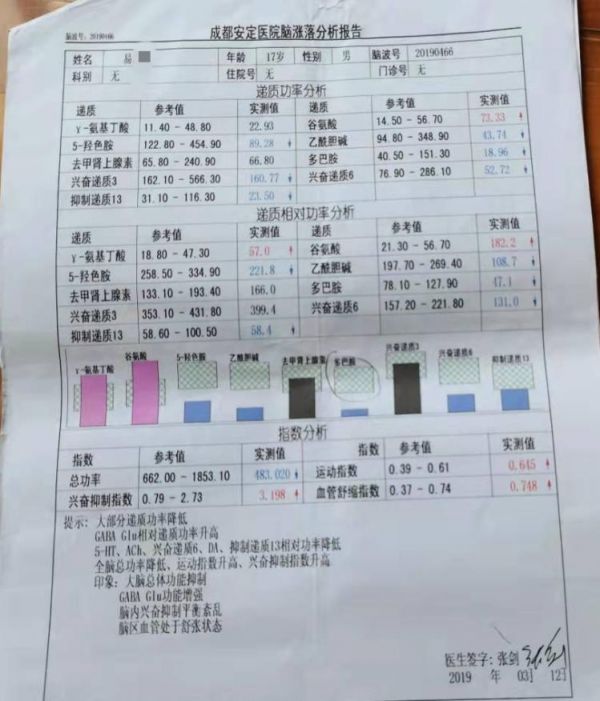 成都安定医院脑涨落分析报告
脑波号: 20190466
姓名 易 年龄 17岁 性别 男 脑波号 20190466
科别 无 住院号 无 门诊号 无
递质功率分析
递质 参考值 实测值 递质 参考值 实测值
γ-氨基丁酸 11.40 - 48.80 22.93 谷氨酸 14.50 - 56.70 73.33 ↑
5-羟色胺 122.80 - 454.90 89.28 ↓ 乙酰胆碱 94.80 - 348.90 43.74 ↓
去甲肾上腺素 65.80 - 240.90 66.80 多巴胺 40.50 - 151.30 18.96 ↓
兴奋递质3 162.10 - 566.30 160.77 ↓ 兴奋递质6 76.90 - 286.10 52.72 ↓
抑制递质13 31.10 - 116.30 23.50 ↓
递质相对功率分析
递质 参考值 实测值 递质 参考值 实测值
γ-氨基丁酸 18.80 - 47.30 57.0 ↑ 谷氨酸 21.30 - 56.70 182.2 ↑
5-羟色胺 258.50 - 334.90 221.8 ↓ 乙酰胆碱 197.70 - 269.40 108.7 ↓
去甲肾上腺素 133.10 - 193.40 166.0 多巴胺 78.10 - 127.90 47.1 ↓
兴奋递质3 353.10 - 431.80 399.4 兴奋递质6 157.20 - 221.80 131.0 ↓
抑制递质13 58.60 - 100.50 58.4 ↓
γ-氨基丁酸 谷氨酸 5-羟色胺 乙酰胆碱 去甲肾上腺素 多巴胺 兴奋递质3 兴奋递质6 抑制递质13
指数分析
指数 参考值 实测值 指数 参考值 实测值
总功率 662.00 - 1853.10 483.020 ↓ 运动指数 0.39 - 0.61 0.645 ↑
兴奋抑制指数 0.79 - 2.73 3.198 ↑ 血管舒缩指数 0.37 - 0.74 0.748 ↑
提示: 大部分递质功率降低
GABA Glu相对递质功率升高
5-HT、ACh、兴奋递质6、DA、抑制递质13相对功率降低
全脑总功率降低、运动指数升高、兴奋抑制指数升高
印象: 大脑总体功能抑制
GABA Glu功能增强
脑内兴奋抑制平衡紊乱
脑区血管处于舒张状态
医生签字: 张剑 张剑
2019 年 03月 12日